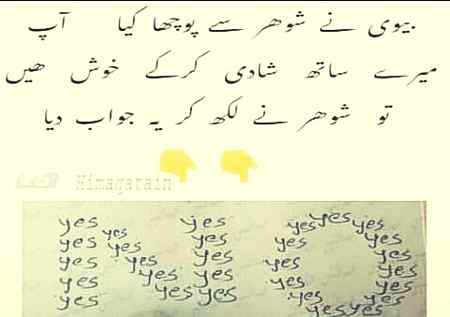 بیوی نے شوھر سے پوچھا کیا آپ
میرے ساتھ شادی کرکے خوش ھیں
تو شوھر نے لکھ کر یہ جواب دیا
Himaqatain
yes yes yes yes yes
yes yes yes yes yes yes
yes yes yes yes yes
yes yes yes yes yes
yes yes yes yes yes